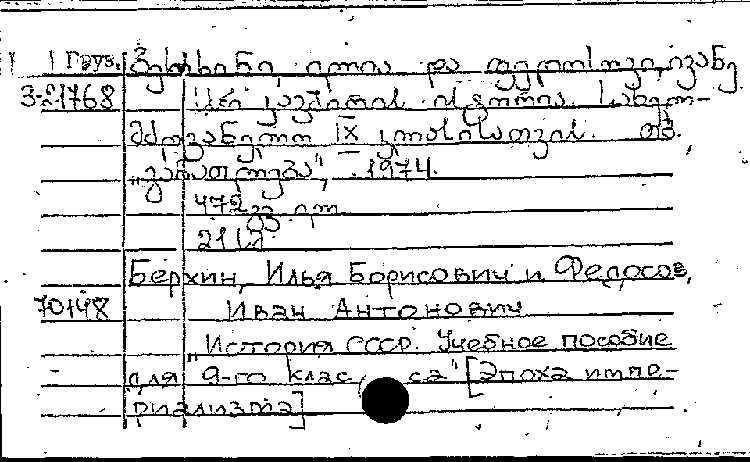 Груз. ბერხინი, ილია და ფედოსოვი, ივანე
3-21768 სსრ კავშირის ისტორია. სახელ-
მძღვანელო IX კლასისათვის. თბ.
„განათლება", 1974.
472 გვ.
Берхин, Илья Борисович и Федосов,
70148 Иван Антонович
„История СССР. Учебное пособие
для 9-го клас, са" [Эпоха импе-
риализма]